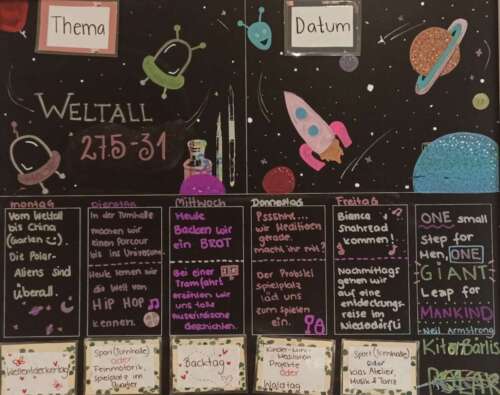 Thema
Datum
WELTALL
27.5-31
Montag
Vom Weltall
bis China
(Garten
Die Polar-
Aliens sind
überall.
Dienstag
In der Turnhalle
machen wir
einen Parcour
bis ins Universum.
Heute lernen wir
die Welt von
HIP HOP
kennen.
Mittwoch
Heute
Backen wir
ein BROT
Bei einer
Tramfahrt
erzählen wir
uns tolle
ausserirdische
Geschichten.
Donnerstag
Pssshht...
wir meditieren
gerade.
macht ihr mit?
Der Probstei
spielplatz
läd uns
zum spielen
ein.
Freitag
Bianca
Shahzead
kommen!
Nachmittags
gehen wir
auf eine
entdeckungs-
reise im
Niederdörfli
ONE small
Step for
Men, ONE
GIANT
Leap for
MANKIND
-Neil Armstrong
Waldentdeckertag
Sport (Turnhalle)
oder
Feinmotorik,
Spielplatz im
Quartier
Backtag
Kinder-Yoga
Meditation
Projekte
oder
Waldtag
Sport (Turnhalle)
oder
Kids Atelier,
Musik & Tanz
Kita Bärlis